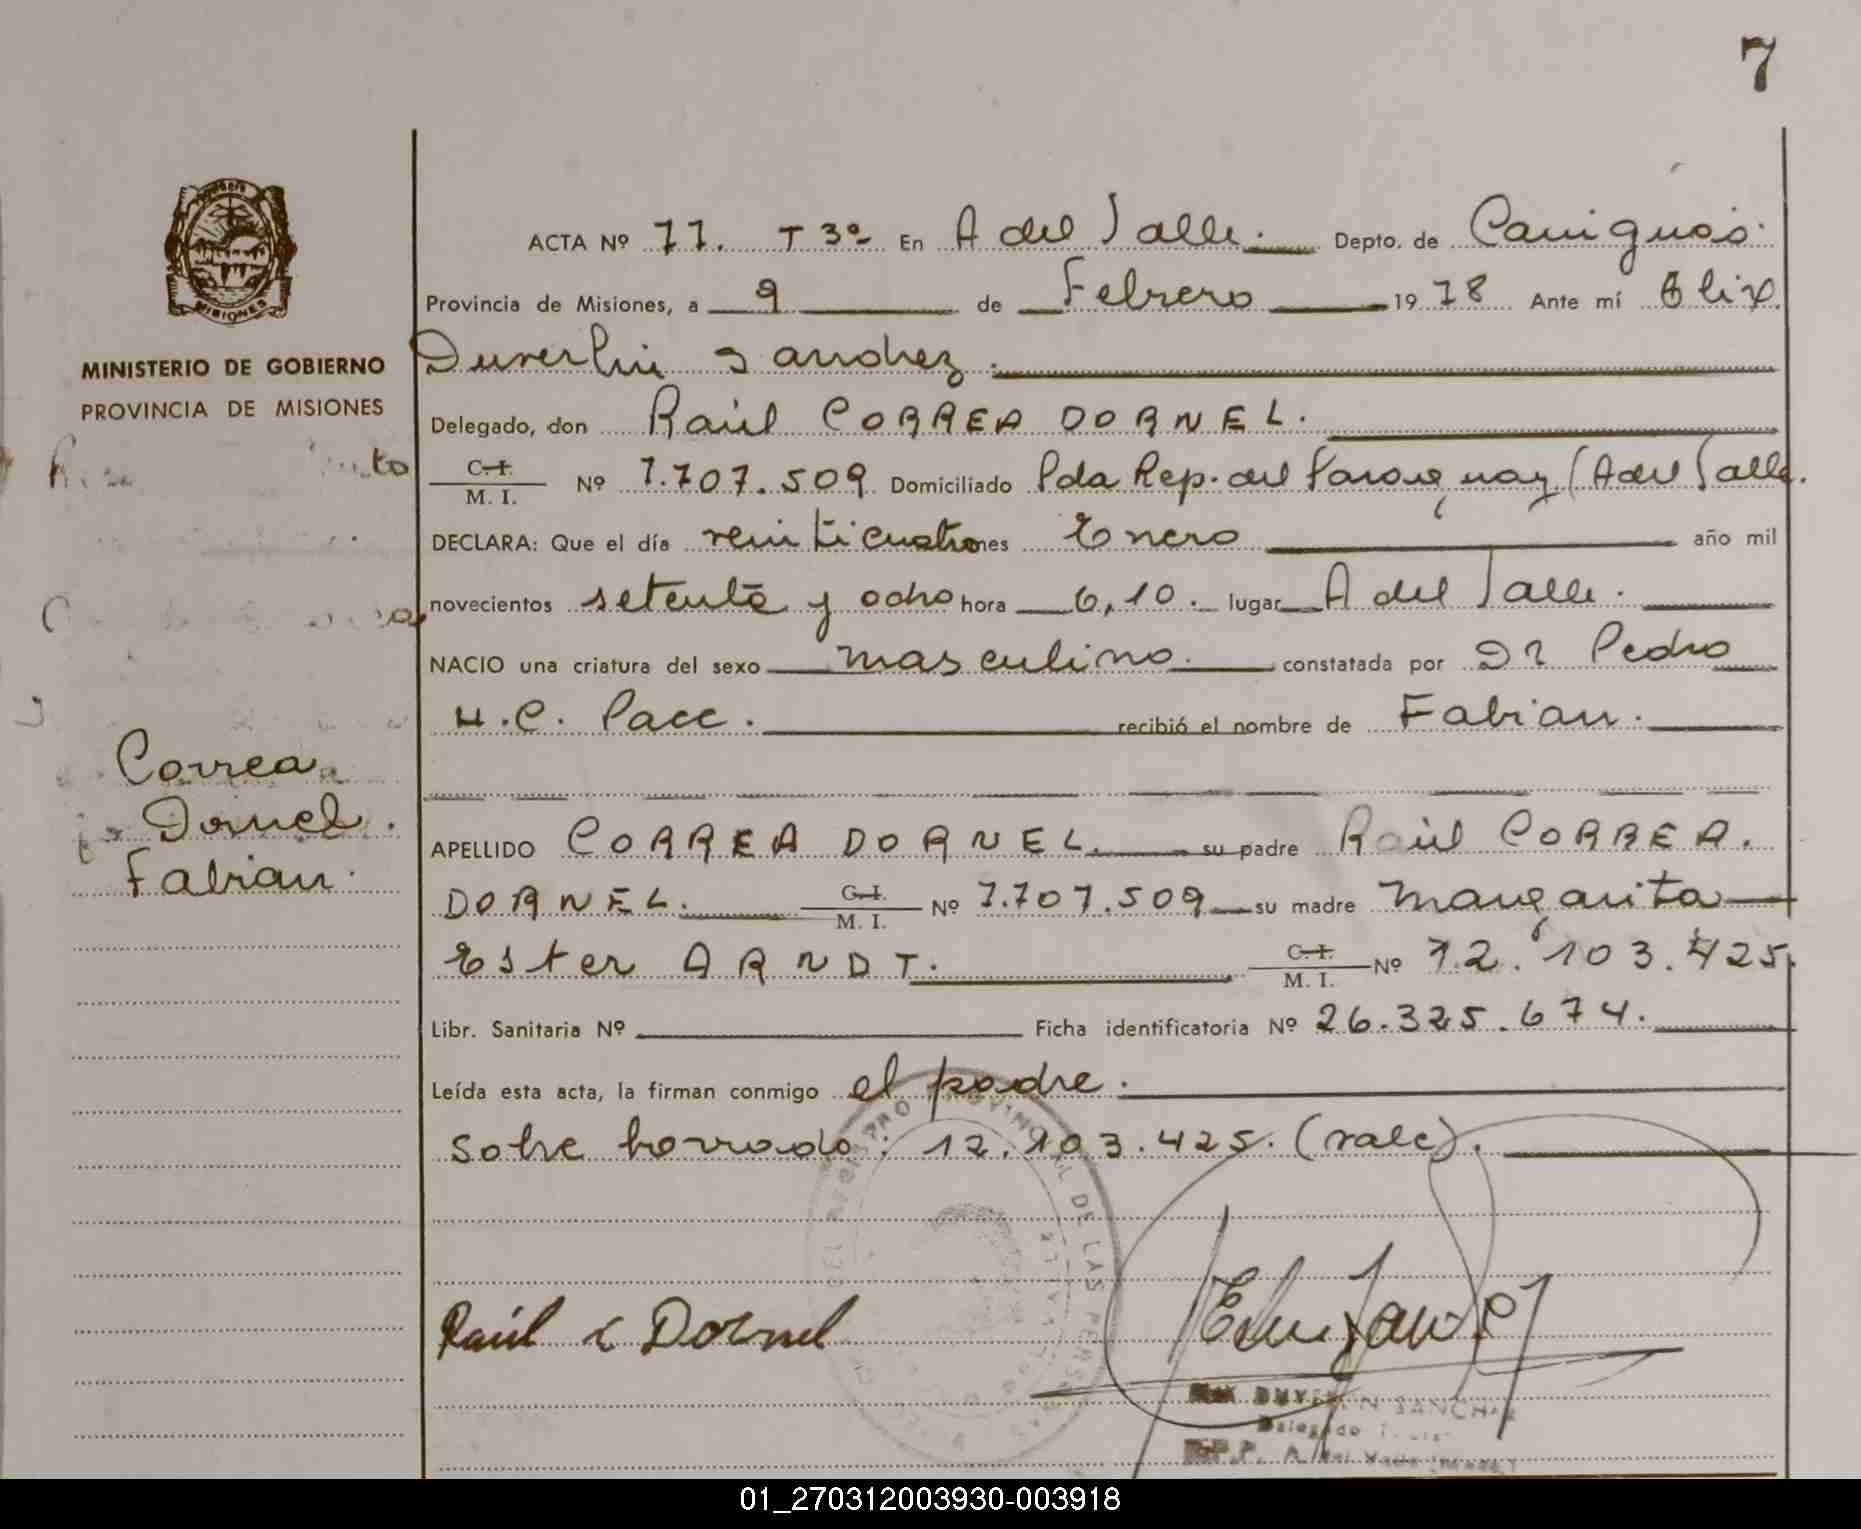 7
ACTA Nº 77. T 3º En A del Valle. Depto. de Cainguás.
Provincia de Misiones, a 9 de Febrero 1978 Ante mí Elix
Duverlin Sanchez.
MINISTERIO DE GOBIERNO
PROVINCIA DE MISIONES
Delegado, don Raúl CORREA DORNEL.
C.I. M. I. Nº 7.707.509 Domiciliado Pda Rep. del Paraguay (A del Valle.
DECLARA: Que el día veinticuatro mes Enero año mil
novecientos setenta y ocho hora 6,10. lugar A del Valle.
NACIO una criatura del sexo masculino. constatada por Dr Pedro
H.C. Pace. recibió el nombre de Fabian.
Correa
Dornel.
Fabian.
APELLIDO CORREA DORNEL. su padre Raúl CORREA.
DORNEL. C.I. M. I. Nº 7.707.509 su madre Margarita
Ester ARNDT. C.I. M. I. Nº 12.103.425.
Libr. Sanitaria Nº Ficha identificatoria Nº 26.325.674.
Leída esta acta, la firman conmigo el padre.
Sobre borrado: 12.103.425. (vale).
Raúl C Dornel
DUVERLIN SANCHEZ
Delegado
A. del Valle
01_270312003930-003918